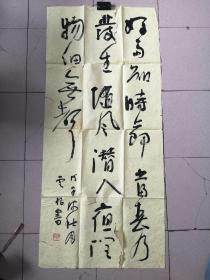 好雨知時節當春乃
發生隨風潛入夜潤
物細無聲
戊子秋月
書